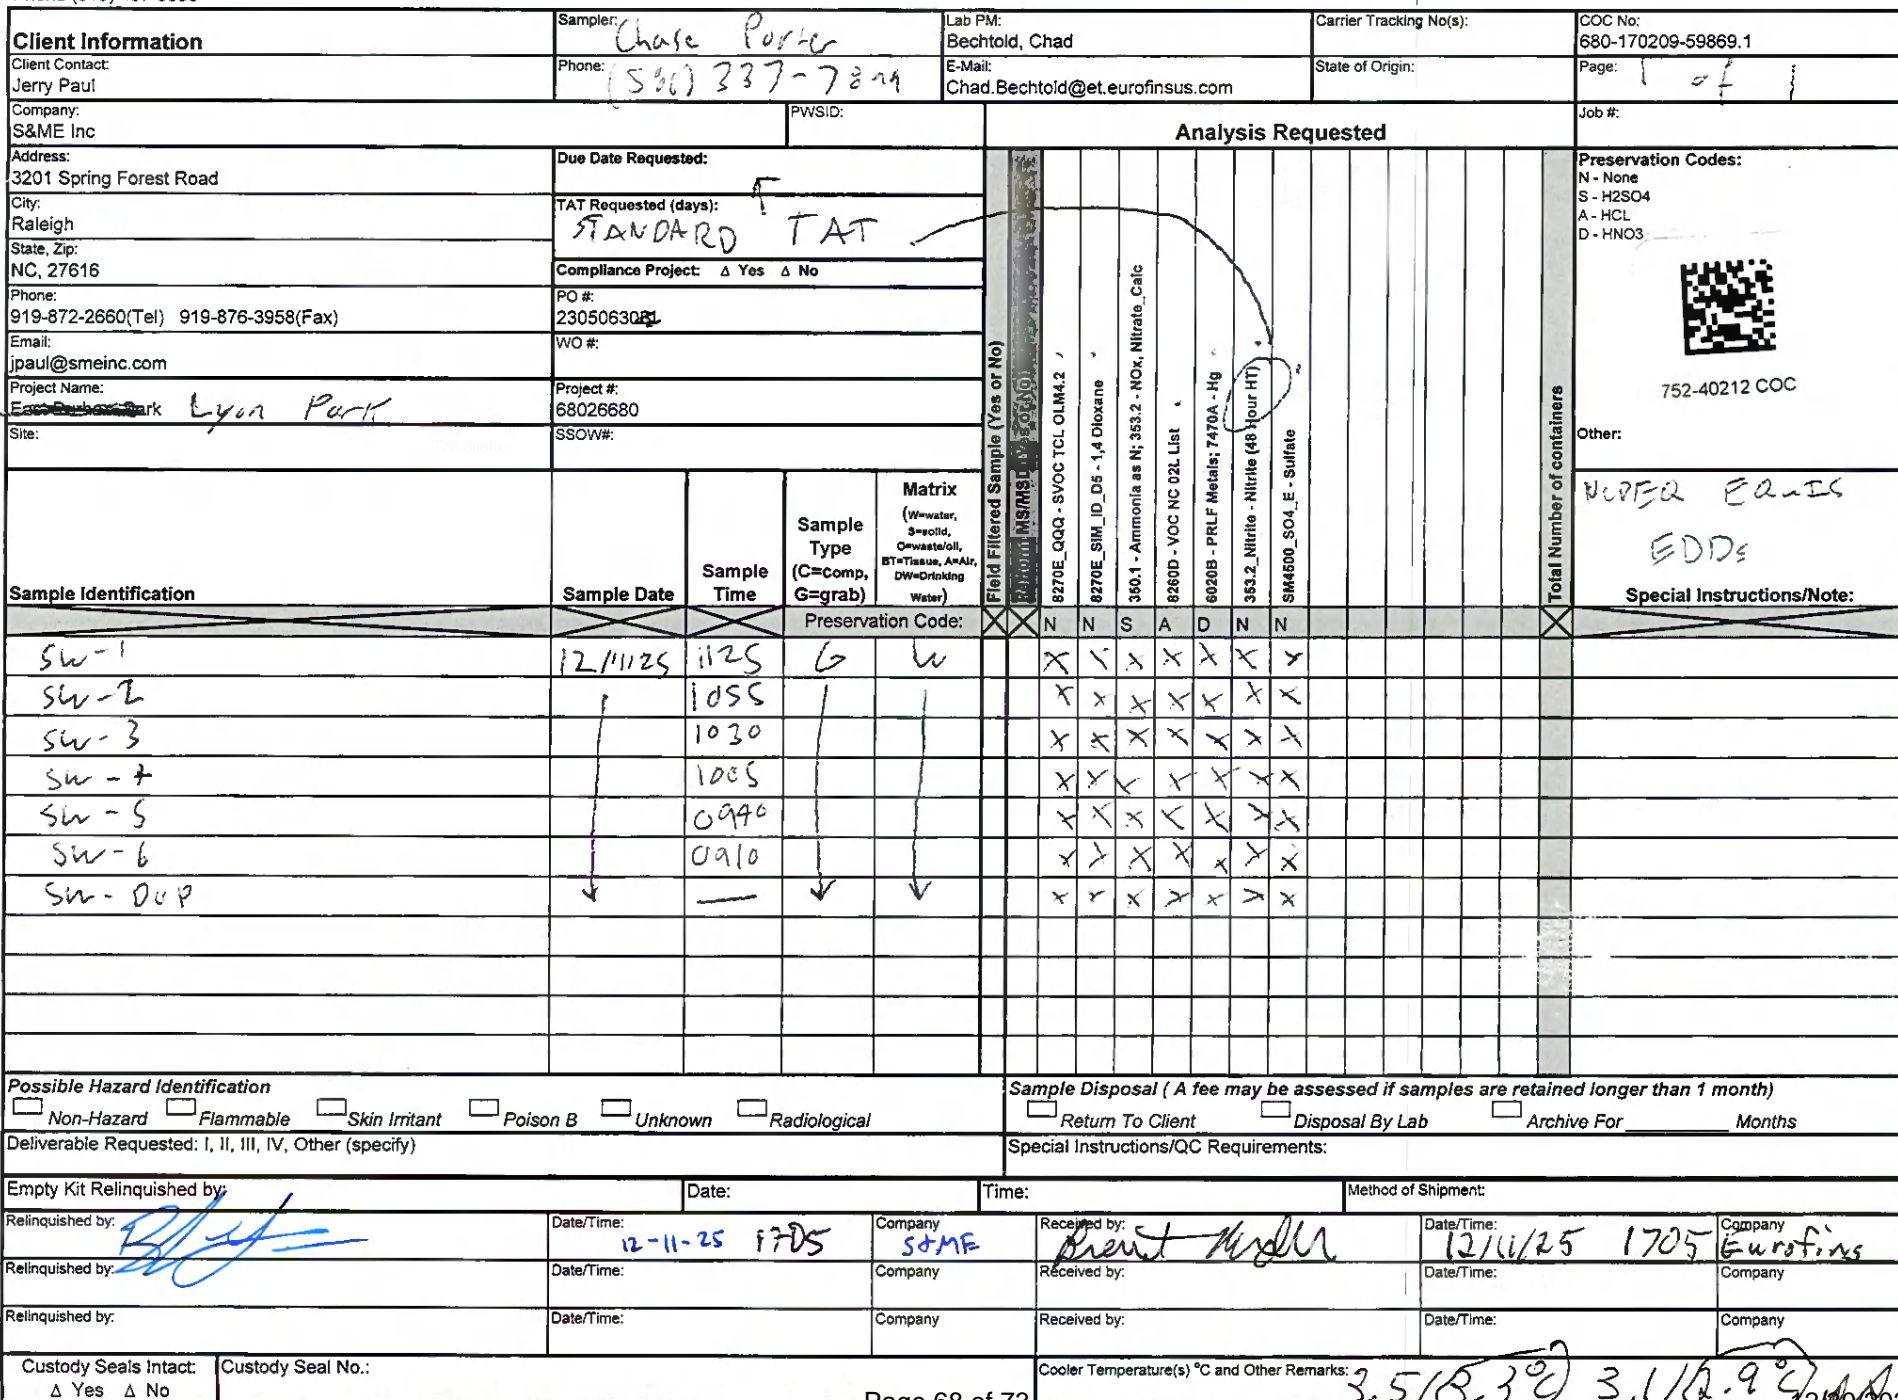 Client Information
Sampler: Chase Porter
Lab PM:
Bechtold, Chad
Carrier Tracking No(s):
COC No:
680-170209-59869.1
Client Contact:
Jerry Paul
Phone:
337-
E-Mail:
Chad.Bechtold@et.eurofinsus.com
State of Origin:
Page: 1 of 1
Company:
S&ME Inc
PWSID:
Analysis Requested
Job #:
Address:
3201 Spring Forest Road
Due Date Requested:
City:
Raleigh
TAT Requested (days):
STANDARD TAT
State, Zip:
NC, 27616
Compliance Project: Δ Yes Δ No
Phone:
919-872-2660(Tel) 919-876-3958(Fax)
PO #:
Email:
jpaul@smeinc.com
WO #:
Project Name:
Lyon Park
Project #:
68026680
Site:
SSOW#:
Preservation Codes:
N - None
S - H2SO4
A - HCL
D - HNO3
752-40212 COC
Other:
NCDEQ EQuIS
EDDs
Special Instructions/Note:
Sample Identification
Sample Date
Sample
Time
Sample
Type
(C=comp,
G=grab)
Matrix
(W=water,
S=solid,
O=waste/oil,
BT=Tissue, A=Air,
DW=Drinking
Water)
Field Filtered Sample (Yes or No)
Perform MS/MSD (Yes or No)
8270E_QQQ - SVOC TCL OLM4.2
8270E_SIM_ID_D5 - 1,4 Dioxane
350.1 - Ammonia as N; 353.2 - NOx, Nitrate_Calc
8260D - VOC NC 02L List
6020B - PRLF Metals; 7470A - Hg
353.2_Nitrite - Nitrite (48 Hour HT)
SM4500_SO4_E - Sulfate
Total Number of containers
Preservation Code: N N S A D N N
SW-1 12/11/25 1125 G W X X X X X X X
SW-2 1055 X X X X X X X
SW-3 1030 X X X X X X X
SW-4 1005 X X X X X X X
SW-5 0940 X X X X X X X
SW-6 0910 X X X X X X X
SW-DUP — X X X X X X X
Possible Hazard Identification
Non-Hazard Flammable Skin Irritant Poison B Unknown Radiological
Sample Disposal ( A fee may be assessed if samples are retained longer than 1 month)
Return To Client Disposal By Lab Archive For Months
Deliverable Requested: I, II, III, IV, Other (specify)
Special Instructions/QC Requirements:
Empty Kit Relinquished by:
Date:
Time:
Method of Shipment:
Relinquished by:
Date/Time:
12-11-25 1705
Company
S&ME
Received by:
Brent
Date/Time:
12/11/25 1705
Company
Eurofins
Relinquished by:
Date/Time:
Company
Received by:
Date/Time:
Company
Relinquished by:
Date/Time:
Company
Received by:
Date/Time:
Company
Custody Seals Intact:
Δ Yes Δ No
Custody Seal No.:
Cooler Temperature(s) °C and Other Remarks:
3.5/(3.3°C) 3.1/(2.9°C)
Page 68 of 73